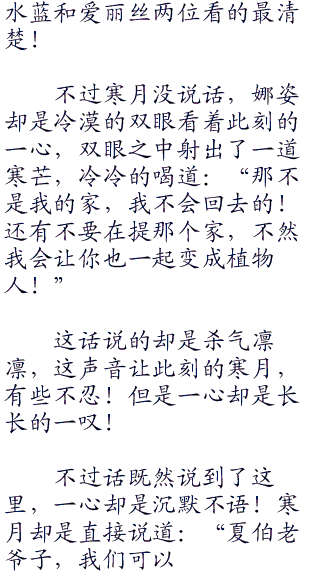 水蓝和爱丽丝两位看的最清
楚！
不过寒月没说话，娜姿
却是冷漠的双眼看着此刻的
一心，双眼之中射出了一道
寒芒，冷冷的喝道：“那不
是我的家，我不会回去的！
还有不要在提那个家，不然
我会让你也一起变成植物
人！”
这话说的却是杀气凛
凛，这声音让此刻的寒月，
有些不忍！但是一心却是长
长的一叹！
不过话既然说到了这
里，一心却是沉默不语！寒
月却是直接说道：“夏伯老
爷子，我们可以